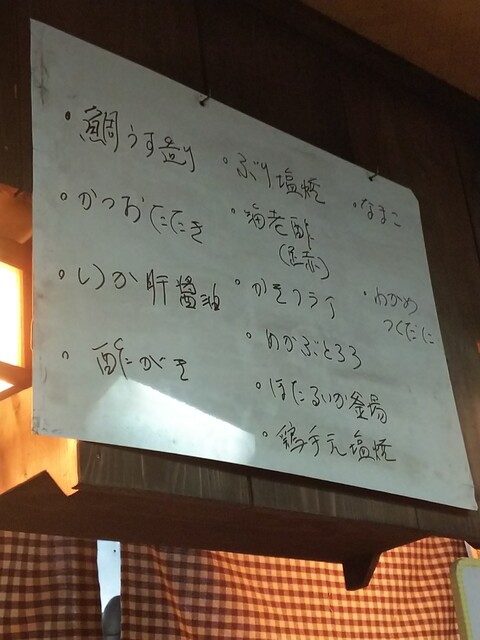 ・鯛うす造り
・かつおたたき
・いか肝醤油
・酢がき
・ぶり塩焼
・海老酢
・かきフライ
・めかぶとろろ
・ほたるいか釜揚
・鶏手元塩焼
・なまこ
・わかめ
つくだに